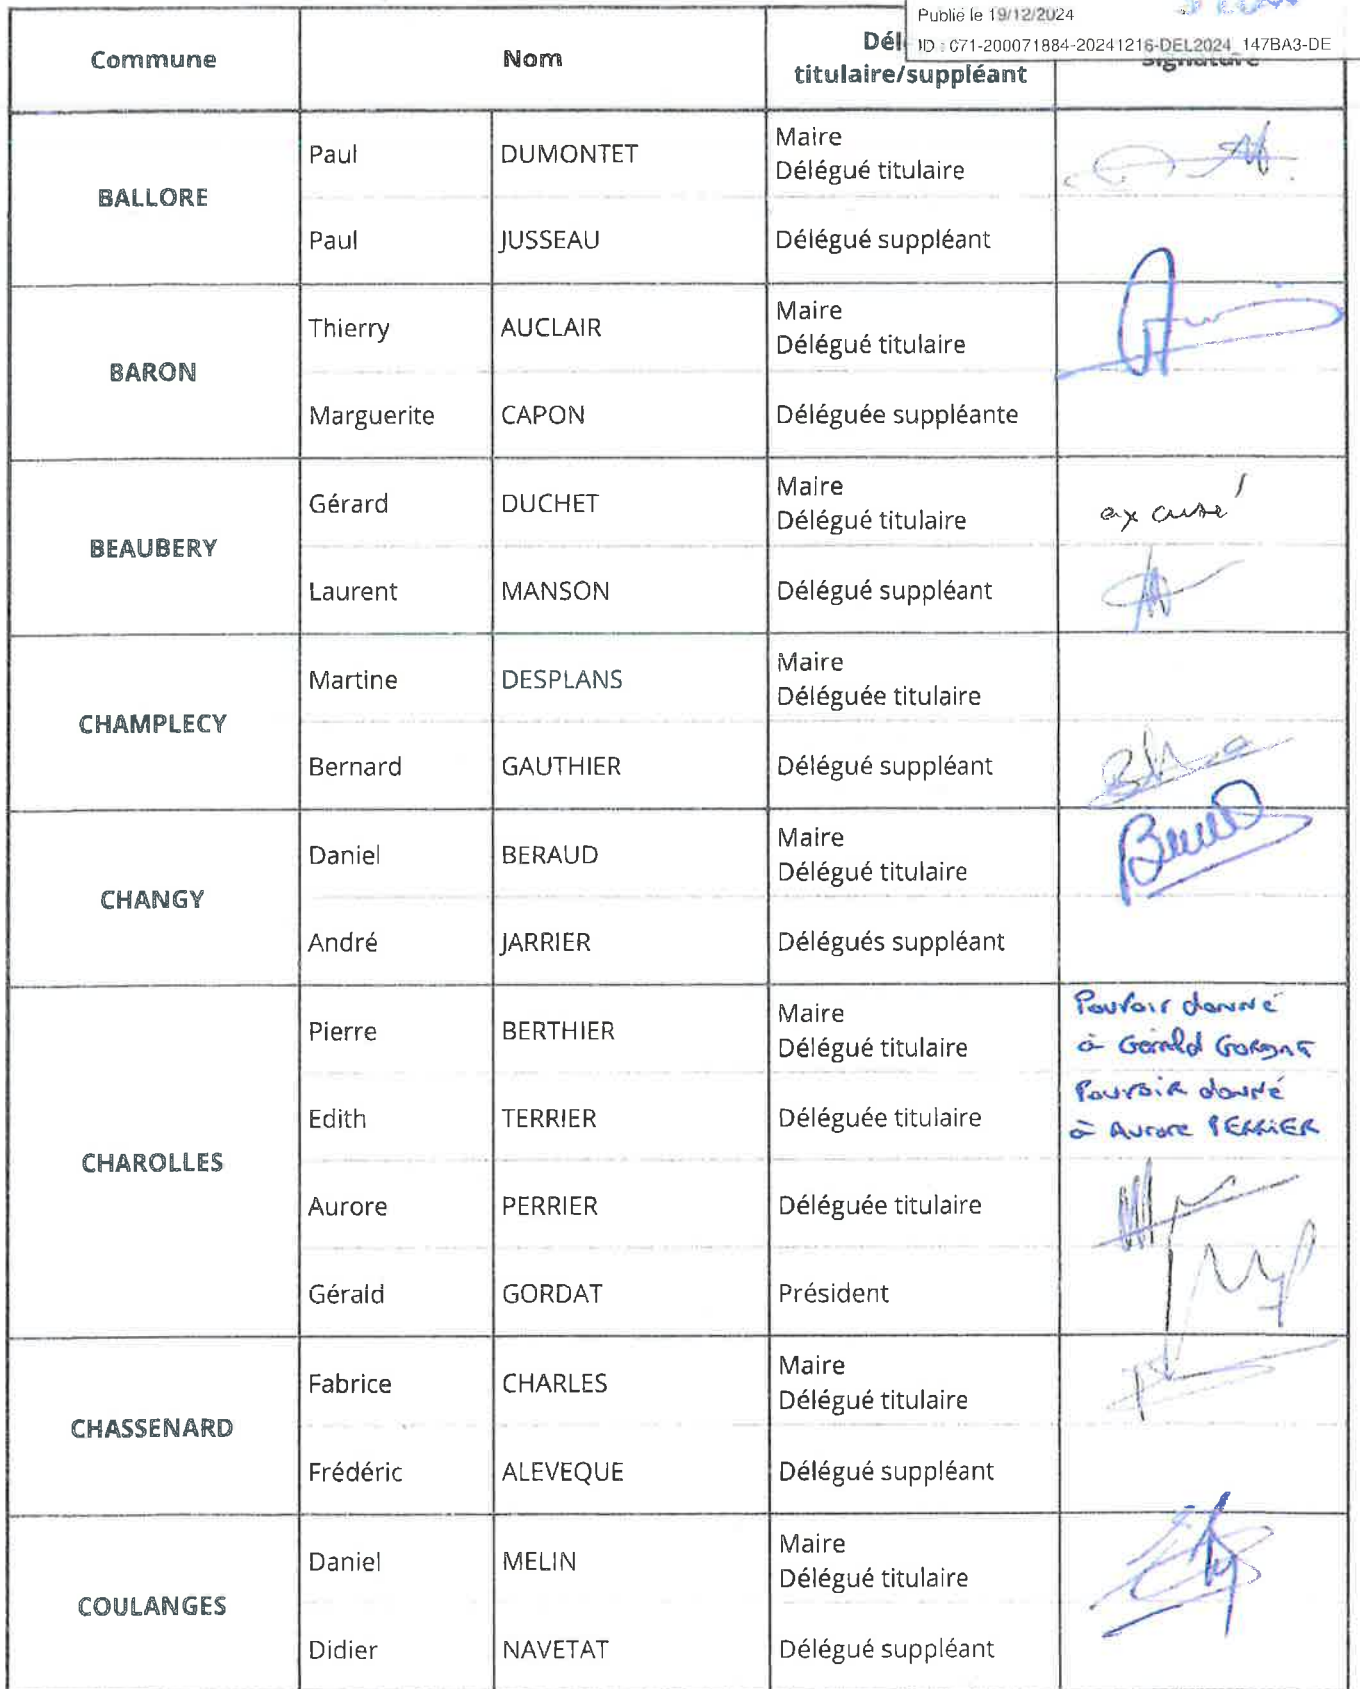 Publié le 19/12/2024
ID : 071-200071884-20241216-DEL2024_147BA3-DE
Commune
Nom
Dél
titulaire/suppléant
Signature
BALLORE
Paul
DUMONTET
Maire
Délégué titulaire
Paul
JUSSEAU
Délégué suppléant
BARON
Thierry
AUCLAIR
Maire
Délégué titulaire
Marguerite
CAPON
Déléguée suppléante
BEAUBERY
Gérard
DUCHET
Maire
Délégué titulaire
excusé
Laurent
MANSON
Délégué suppléant
CHAMPLECY
Martine
DESPLANS
Maire
Déléguée titulaire
Bernard
GAUTHIER
Délégué suppléant
CHANGY
Daniel
BERAUD
Maire
Délégué titulaire
André
JARRIER
Délégués suppléant
CHAROLLES
Pierre
BERTHIER
Maire
Délégué titulaire
Pouvoir donné
à Gérald GORDAT
Edith
TERRIER
Déléguée titulaire
Pouvoir donné
à Aurore PERRIER
Aurore
PERRIER
Déléguée titulaire
Gérald
GORDAT
Président
CHASSENARD
Fabrice
CHARLES
Maire
Délégué titulaire
Frédéric
ALEVEQUE
Délégué suppléant
COULANGES
Daniel
MELIN
Maire
Délégué titulaire
Didier
NAVETAT
Délégué suppléant